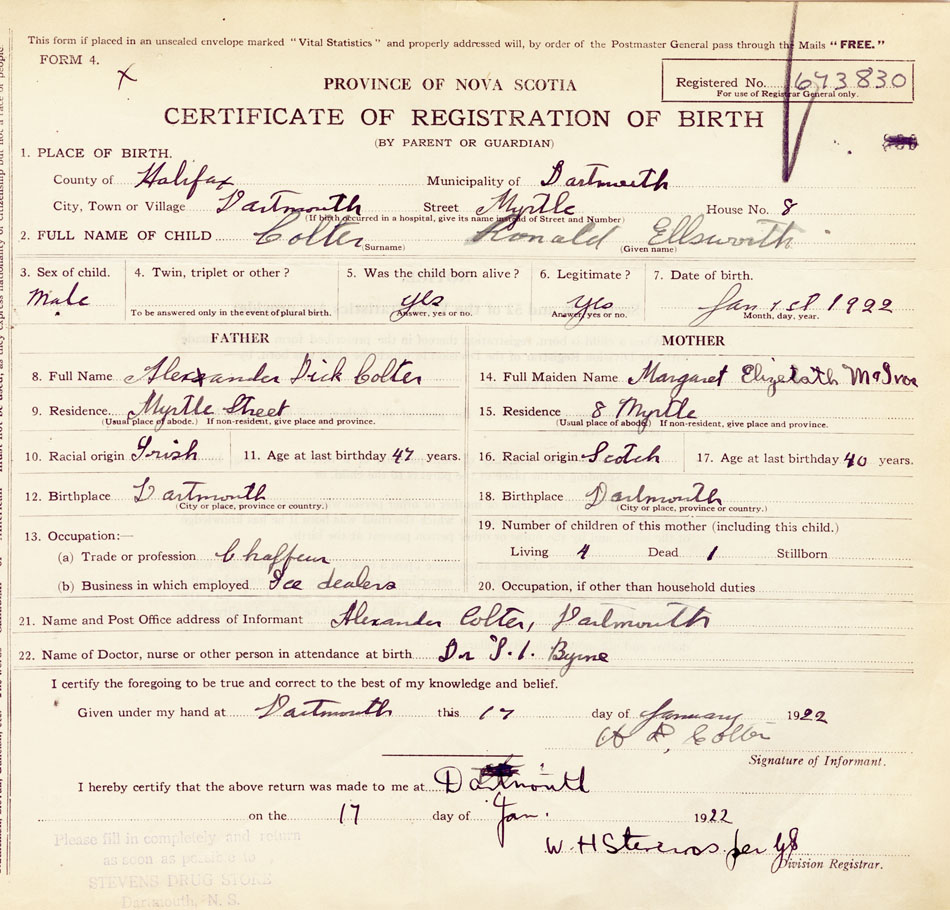 This form if placed in an unsealed envelope marked "Vital Statistics" and properly addressed will, by order of the Postmaster General pass through the Mails "FREE."
FORM 4.
X
PROVINCE OF NOVA SCOTIA
Registered No. 673830
For use of Registrar General only.
CERTIFICATE OF REGISTRATION OF BIRTH
(BY PARENT OR GUARDIAN)
1. PLACE OF BIRTH.
County of Halifax Municipality of Dartmouth
City, Town or Village Dartmouth Street Myrtle House No. 8
(If birth occurred in a hospital, give its name instead of Street and Number)
2. FULL NAME OF CHILD Colter Ronald Ellsworth
(Surname) (Given name)
3. Sex of child. 4. Twin, triplet or other? 5. Was the child born alive? 6. Legitimate? 7. Date of birth.
Male yes yes Jan 1st 1922
To be answered only in the event of plural birth. Answer, yes or no. Answer, yes or no. Month, day, year.
FATHER MOTHER
8. Full Name Alexander Dick Colter 14. Full Maiden Name Margaret Elizebath McIvor
9. Residence Myrtle Street 15. Residence 8 Myrtle
(Usual place of abode.) If non-resident, give place and province. (Usual place of abode.) If non-resident, give place and province.
10. Racial origin Irish 11. Age at last birthday 47 years. 16. Racial origin Scotch 17. Age at last birthday 40 years.
12. Birthplace Dartmouth 18. Birthplace Dartmouth
(City or place, province or country.) (City or place, province or country.)
13. Occupation:— 19. Number of children of this mother (including this child.)
(a) Trade or profession Chaffeur Living 4 Dead 1 Stillborn
(b) Business in which employed Ice dealers 20. Occupation, if other than household duties
21. Name and Post Office address of Informant Alexander Colter, Dartmouth
22. Name of Doctor, nurse or other person in attendance at birth Dr Byrne
I certify the foregoing to be true and correct to the best of my knowledge and belief.
Given under my hand at Dartmouth this 17 day of January 1922
A D, Colter
Signature of Informant.
I hereby certify that the above return was made to me at Dartmouth
on the 17 day of Jan. 1922
W. H Stevens per
Division Registrar.
Please fill in completely and return
as soon as possible to
STEVENS DRUG STORE
Dartmouth, N. S.